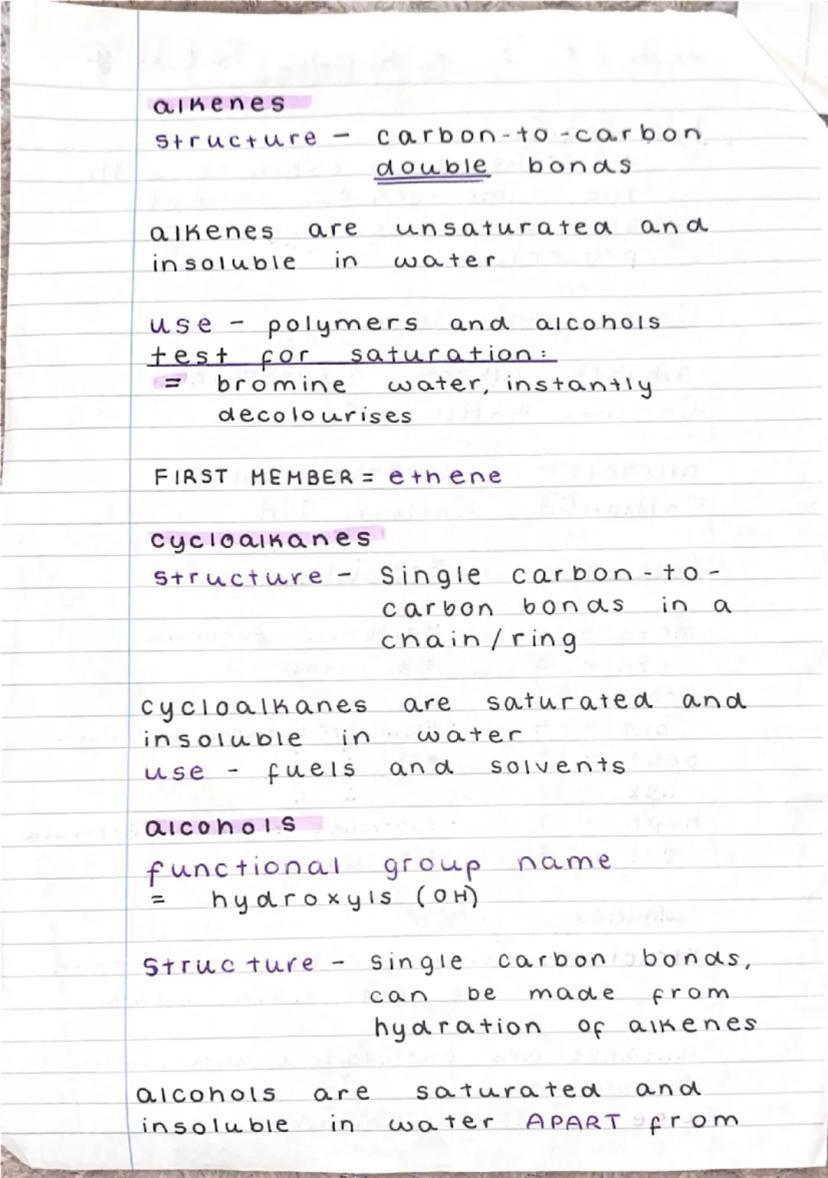 alkenes
structure - carbon-to-carbon
double bonds
alkenes are unsaturated and
insoluble in water
use - polymers and alcohols
test for saturation:
= bromine water, instantly
decolourises
FIRST MEMBER = ethene
cycloalkanes
structure - Single carbon-to-
carbon bonds in a
chain/ring
cycloalkanes are saturated and
insoluble in water
use - fuels and solvents
alcohols
functional group name
= hydroxyls (OH)
Structure - single carbon bonds,
can be made from
hydration of alkenes
alcohols are saturated and
insoluble in water APART from